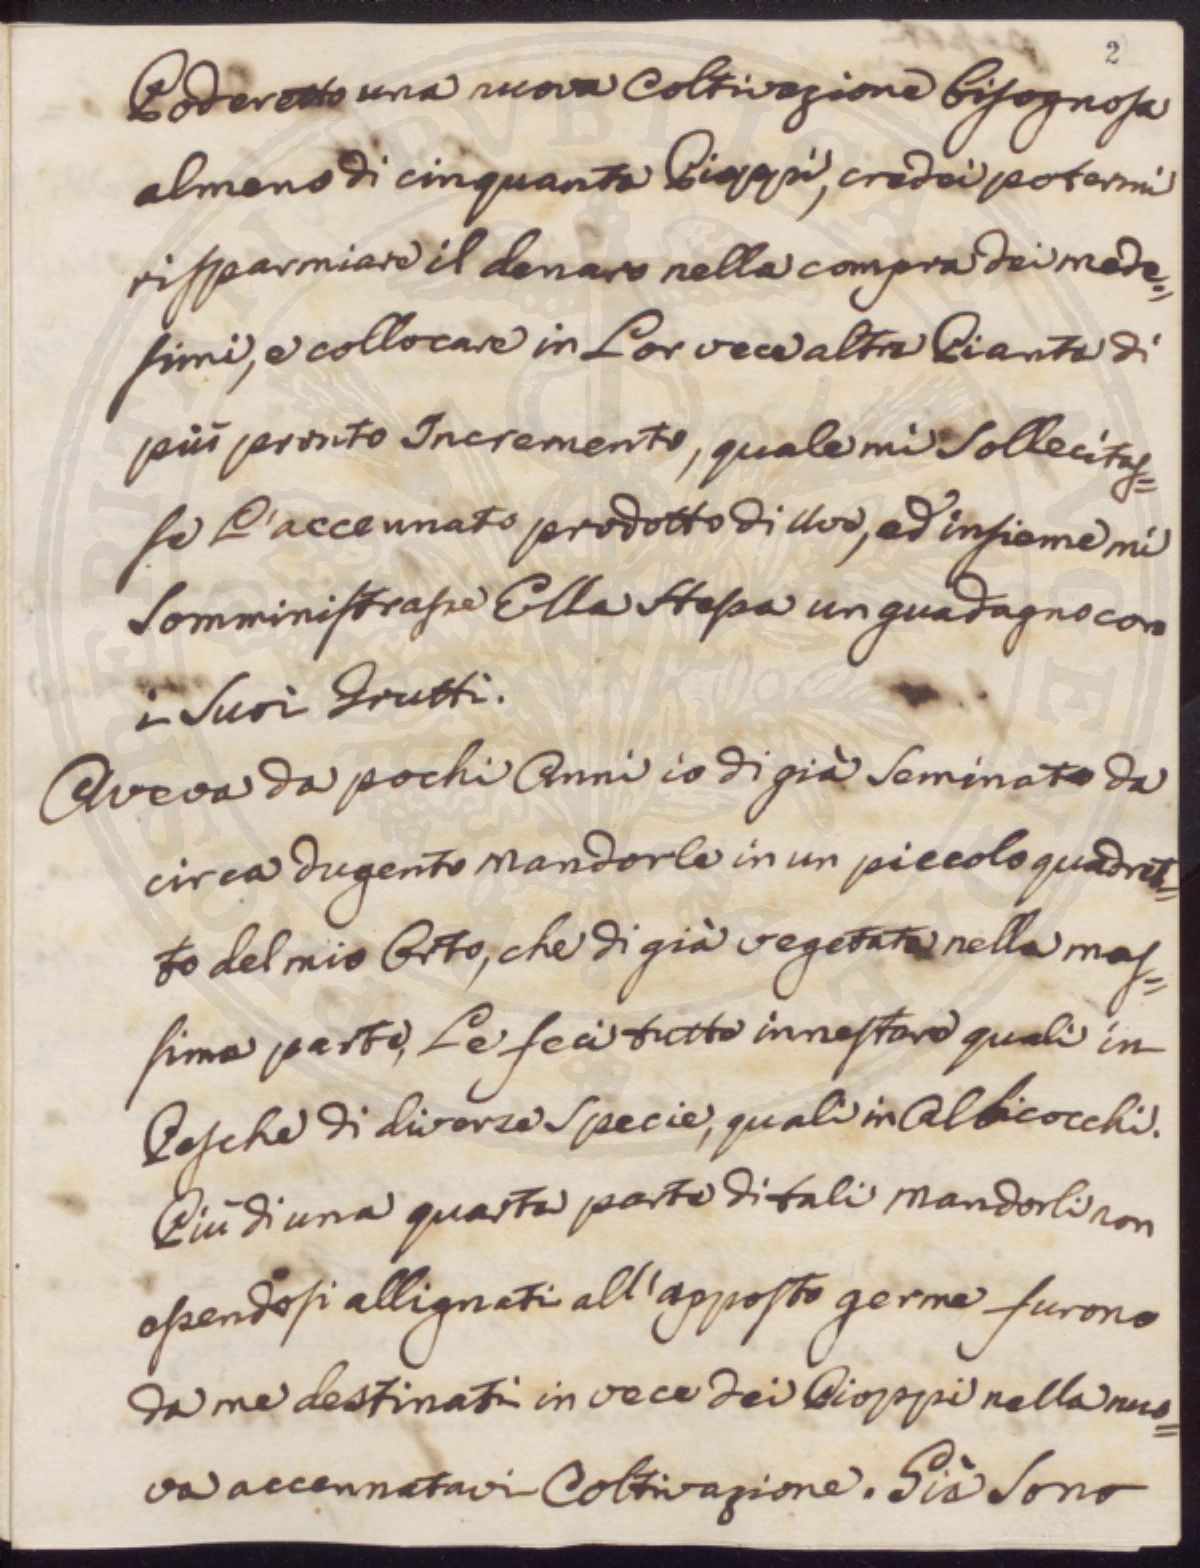 2
Poderetto una nuova Coltivazione bisognosa
almeno di cinquanta Pioppi, credei potermi
risparmiare il denaro nella compra dei mede=
simi, e collocare in Lor vece altra Pianta di
più pronto Incremento, quale mi Sollecitas=
se L'accennato prodotto di Uve, ed insieme mi
Somministrasse Ella Stessa un guadagno con
i Suoi Frutti.
Aveva da pochi Anni io di già Seminato da
circa dugento Mandorle in un piccolo quadret=
to del mio Orto, che di già vegetate nella mas=
sima parte, Le feci tutte innestare quali in
Pesche di diverse Specie, quali in Albicocchi.
Più di una quarta parte di tali Mandorli non
essendosi allignati all'apposto germe furono
da me destinati in vece dei Pioppi nella nuo=
va accennatavi Coltivazione. Già Sono